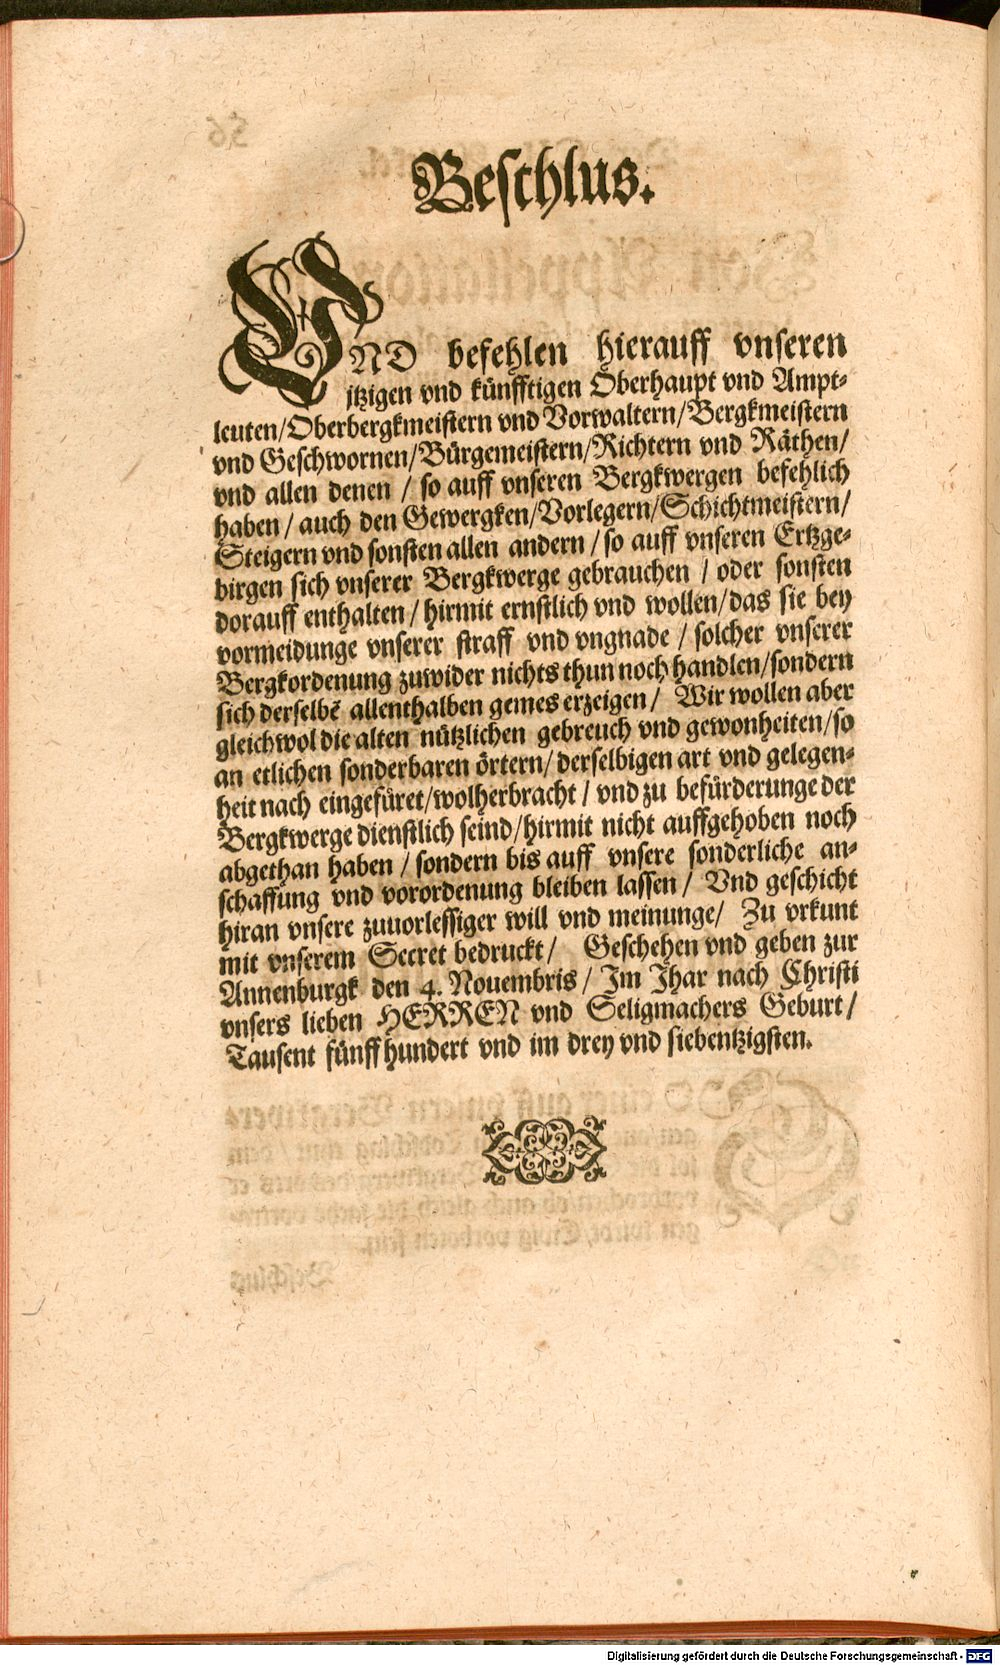 Beschlus.
VND befehlen hierauff vnseren
jtzigen vnd künfftigen Oberhaupt vnd Ampt-
leuten/Oberbergkmeistern vnd Vorwaltern/Bergkmeistern
vnd Geschwornen/Bürgemeistern/Richtern vnd Räthen/
vnd allen denen / so auff vnseren Bergkwergen befehlich
haben / auch den Gewergken/Vorlegern/Schichtmeistern/
Steigern vnd sonsten allen andern / so auff vnseren Ertzge-
birgen sich vnserer Bergkwerge gebrauchen / oder sonsten
dorauff enthalten / hirmit ernstlich vnd wollen/das sie bey
vormeidunge vnserer straff vnd vngnade / solcher vnserer
Bergkordenung zuwider nichts thun noch handlen/sondern
sich derselbē allenthalben gemes erzeigen / Wir wollen aber
gleichwol die alten nützlichen gebreuch vnd gewonheiten/so
an etlichen sonderbaren örtern/ derselbigen art vnd gelegen-
heit nach eingefüret/wolherbracht / vnd zu befürderunge der
Bergkwerge dienstlich seind/hirmit nicht auffgehoben noch
abgethan haben / sondern bis auff vnsere sonderliche an-
schaffung vnd vorordenung bleiben lassen / Vnd geschicht
hiran vnsere zuuorlessiger will vnd meinunge/ Zu vrkunt
mit vnserem Secret bedruckt/ Geschehen vnd geben zur
Annenburgk den 4. Nouembris / Im Jhar nach Christi
vnsers lieben HERREN vnd Seligmachers Geburt /
Tausent fünff hundert vnd im drey vnd siebentzigsten.
Digitalisierung gefördert durch die Deutsche Forschungsgemeinschaft - DFG